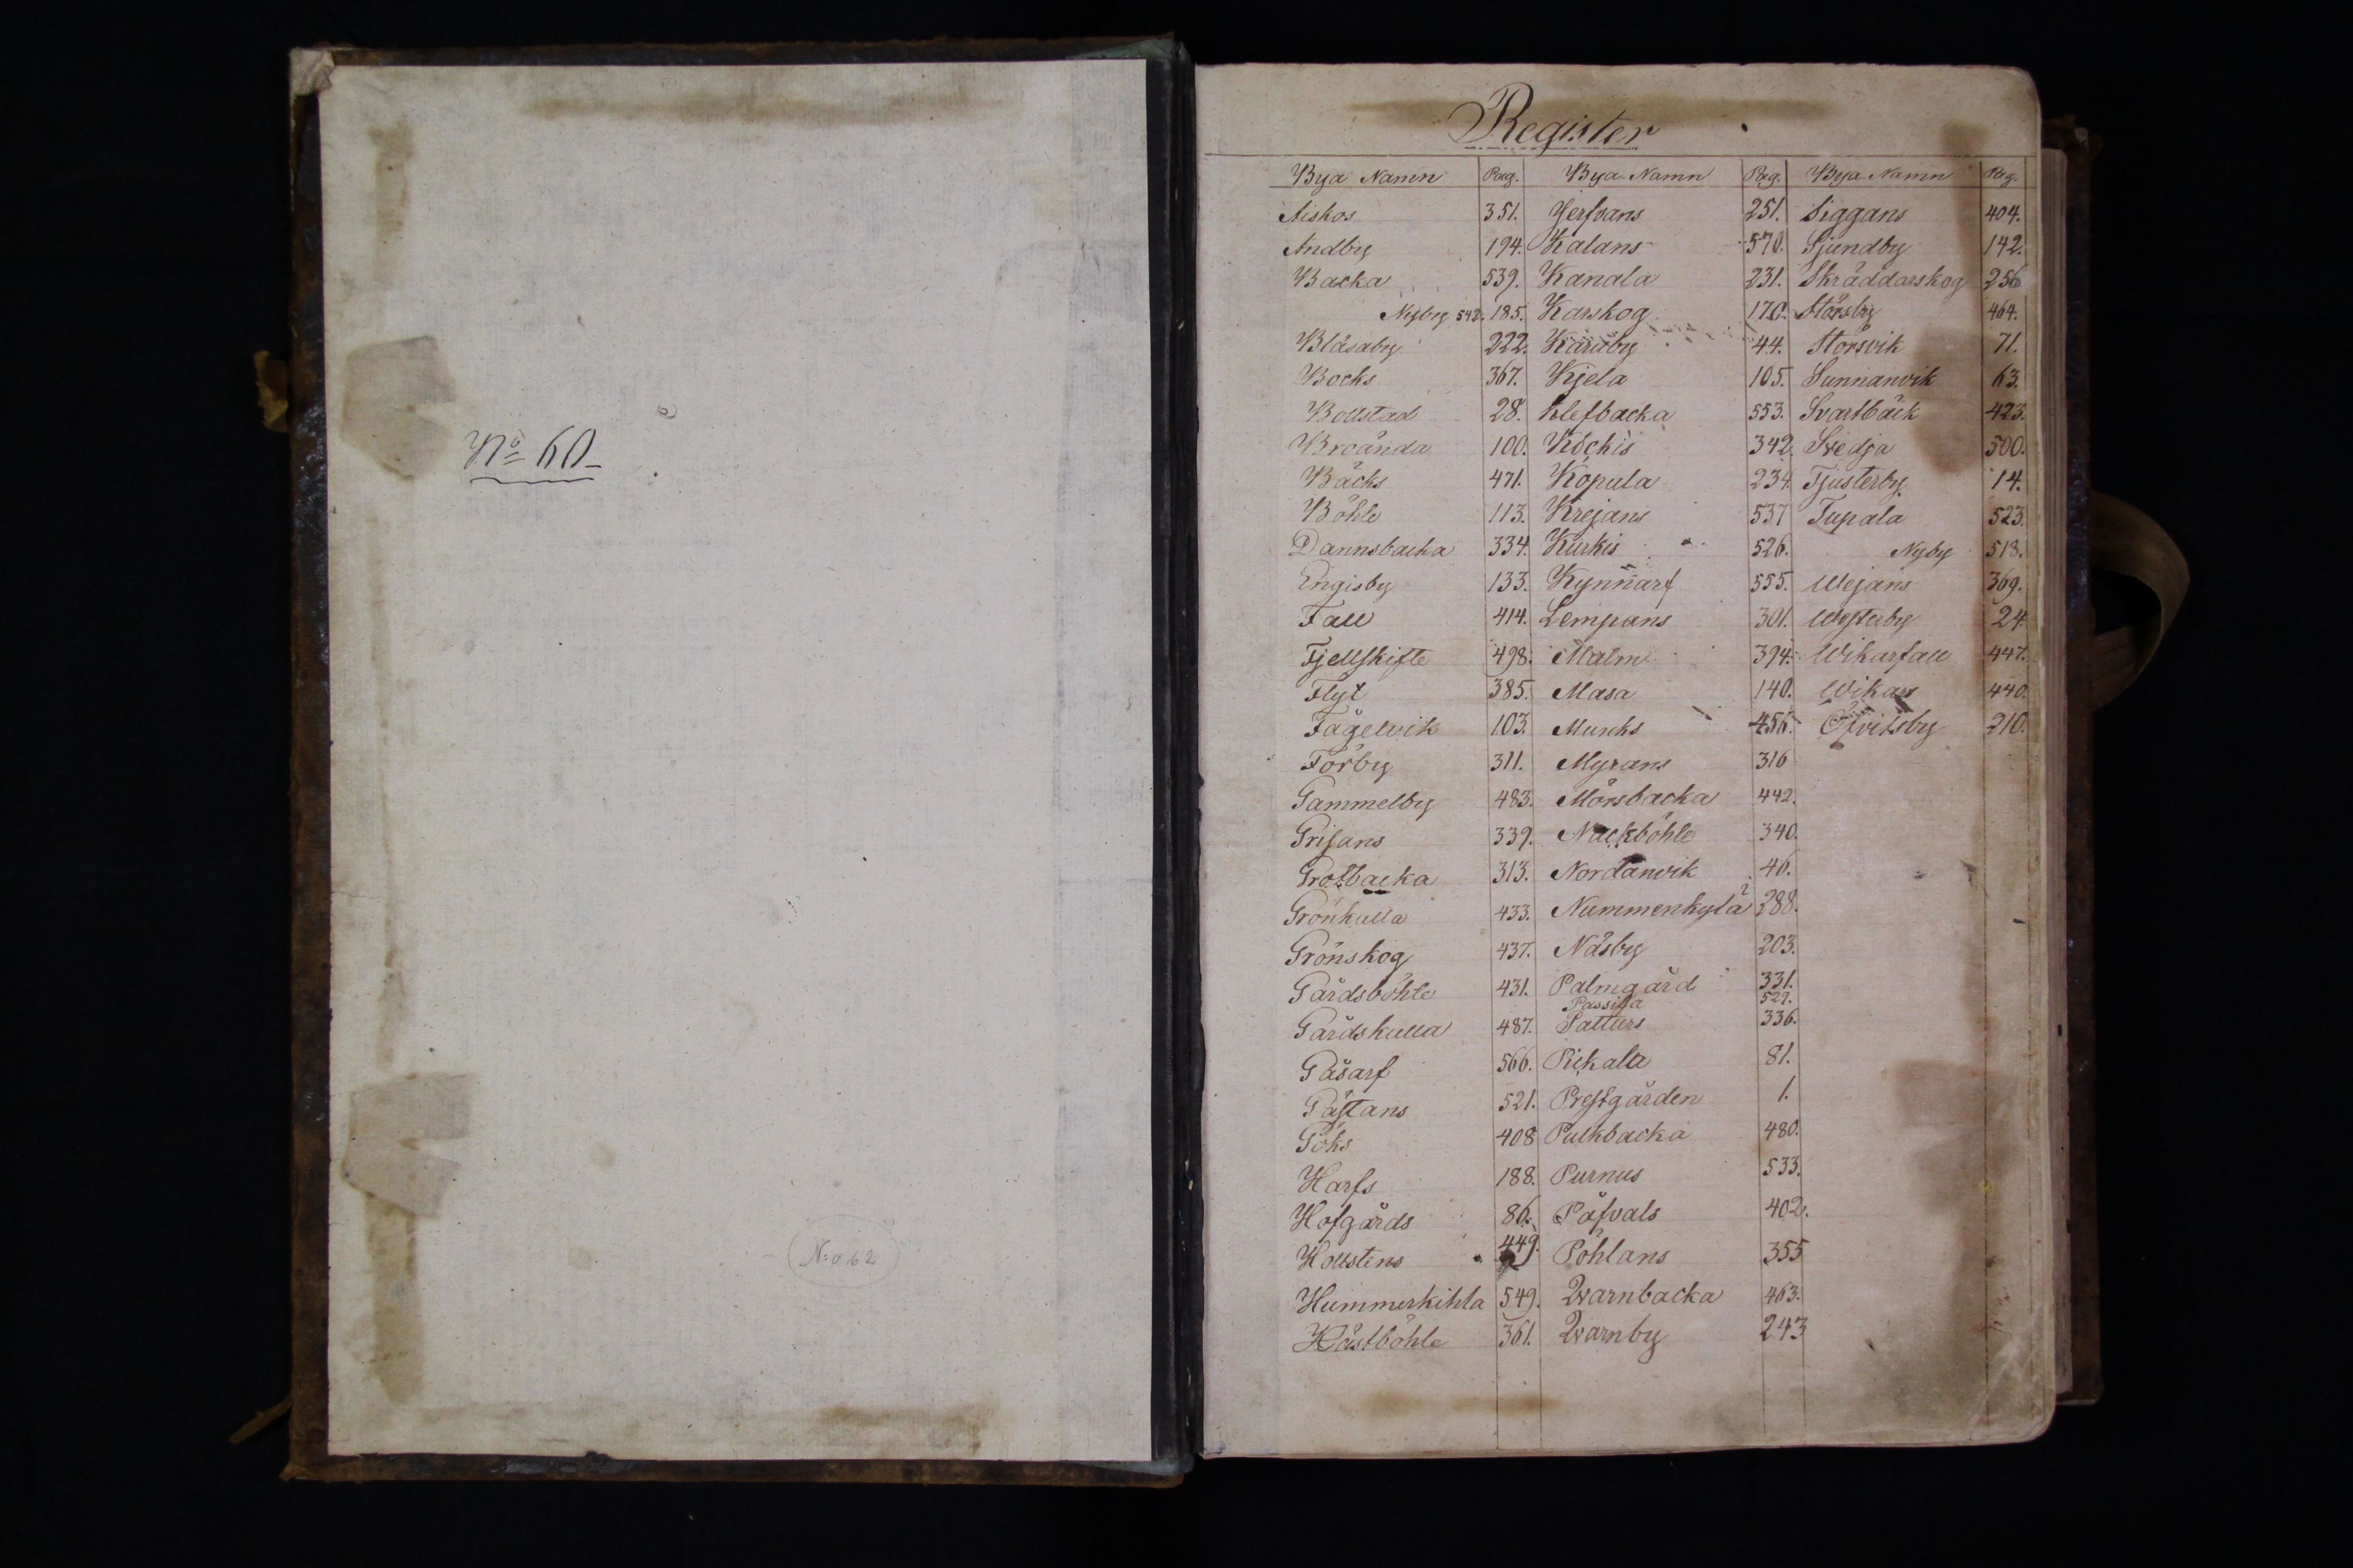 Nº 60
N:o 62
Register
Bya Namn Pag. Bya Namn Pag. Bya Namn Pag.
Aiskos 351. Jerfvans 251. Siggans 404.
Andby 194. Kalans 570. Sjundby 142.
Backa 539. Kanala 231. Skräddarskog 256
Nyby 542. 185. Karskog 170. Störsby 464.
Blåsaby 222. Karuby 44. Störsvik 71.
Bocks 367. Kjela 105. Sunnanvik 63.
Bollstad 28. Klefbacka 553. Svartbäck 423.
Broända 100. Köckis 342. Svedja 500.
Bäcks 471. Kopula 234. Tjusterby 14.
Böhle 113. Krejans 537 Tupala 523.
Dannsbacka 334. Kurkis 526. Nyby 518.
Engisby 133. Kynnarf 555. Wejans 369.
Fall 414. Lempans 301. Westerby 24.
Fjellskifte 498. Malm 394. Wikarfall 447.
Flyt 385. Masa 140. Wikars 440.
Fågelvik 103. Munks 456. Öfvitsby 210.
Förby 311. Myrans 316
Gammelby 483. Mörsbacka 442.
Grisans 339. Nackböhle 340.
Grotbacka 313. Nordanvik 46.
Grönkulla 433. Nummenkylä 288.
Grönskog 437. Näsby 203.
Gårdsböhle 431. Palmgård 331.
Passila 529.
Gårdskulla 487. Patturs 336.
Gåsarf 566. Pickala 81.
Gästans 521. Prestgården 1.
Göks 408 Pulkbacka 480.
Harfs 188. Purnus 533.
Hofgårds 86. Påfvals 402.
Hollstens 449. Pöhlans 355
Hummerkihla 549. Qvarnbacka 463.
Hästböhle 361. Qvarnby 243